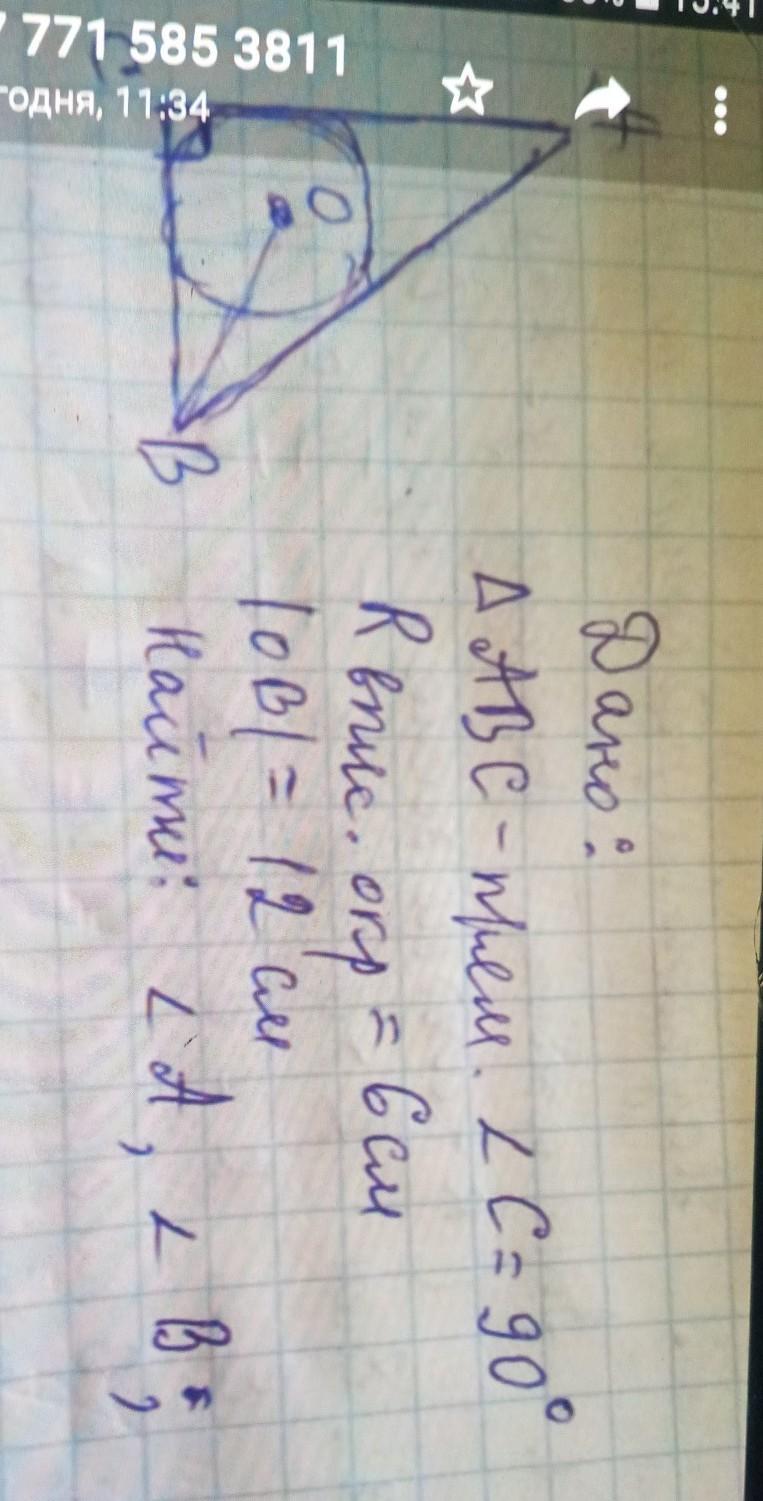 771 585 3811
одня, 11:34
13:41
C
A
O
B
Дано:
Δ ABC - прям. ∠ C = 90°
R впис. окр = 6 см
|OB| = 12 см
Найти: ∠ A, ∠ B;